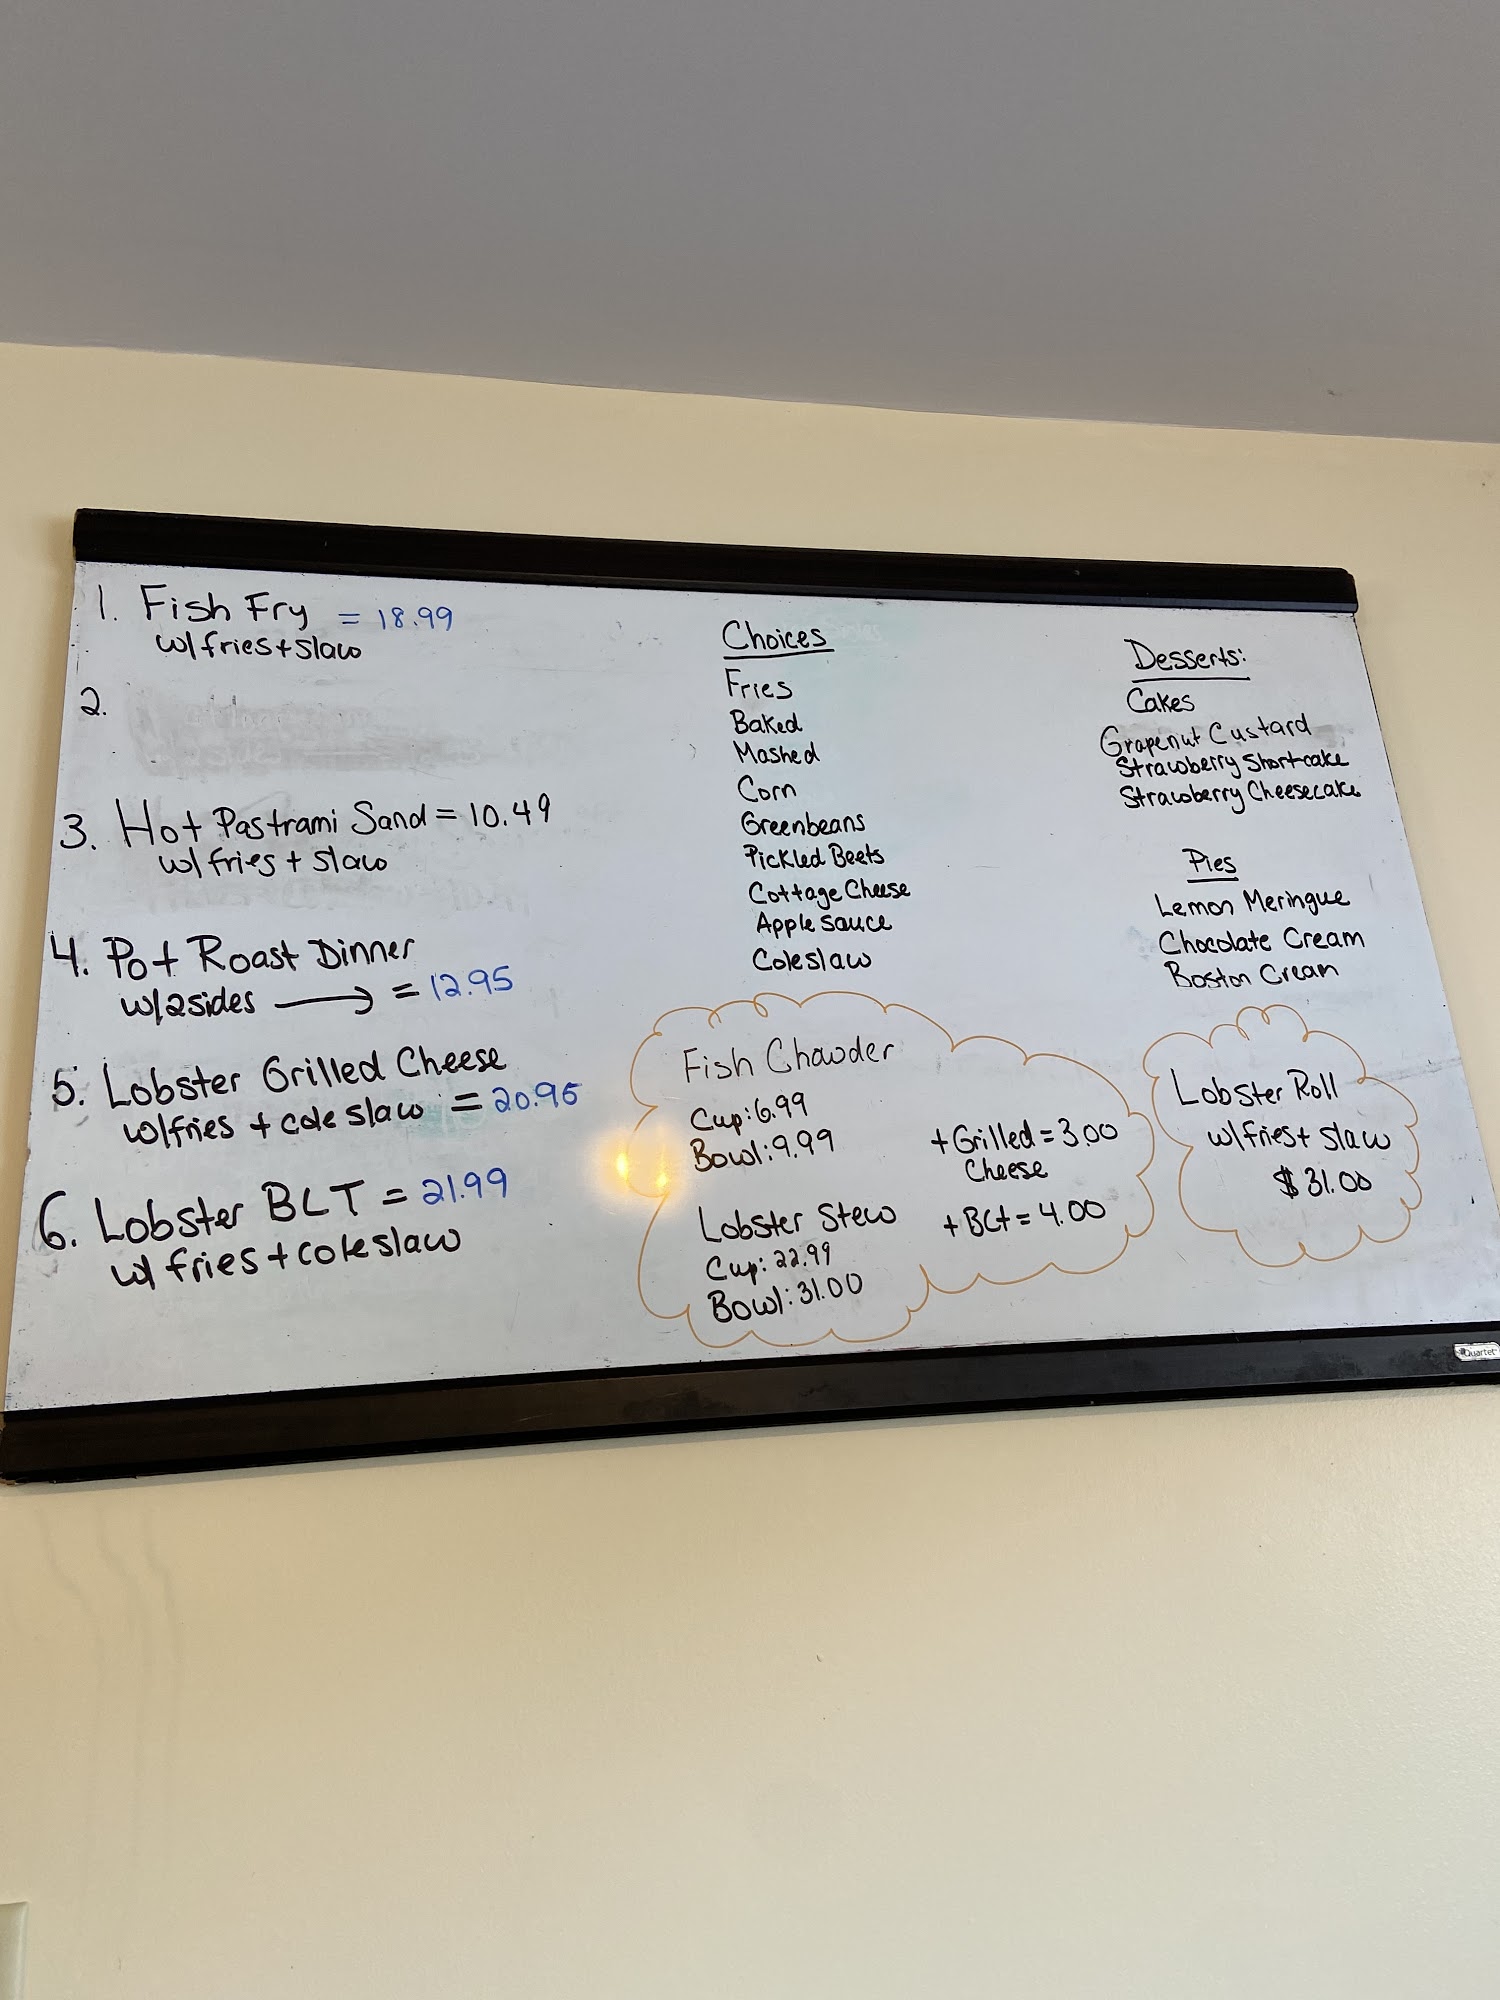 1. Fish Fry = 18.99
w/fries+slaw
2.
3. Hot Pastrami Sand = 10.49
w/fries + slaw
4. Pot Roast Dinner
w/2sides → = 12.95
5. Lobster Grilled Cheese
w/fries + cole slaw = 20.95
6. Lobster BLT = 21.99
w/ fries + coleslaw
Choices
Fries
Baked
Mashed
Corn
Greenbeans
Pickled Beets
Cottage Cheese
Apple sauce
Coleslaw
Desserts:
Cakes
Grapenut Custard
Strawberry Shortcake
Strawberry Cheesecake
Pies
Lemon Meringue
Chocolate Cream
Boston Cream
Fish Chowder
Cup: 6.99
Bowl: 9.99
+Grilled = 3.00
Cheese
Lobster Stew
Cup: 22.99
Bowl: 31.00
+ BLt = 4.00
Lobster Roll
w/fries+ slaw
$ 31.00
Quartet